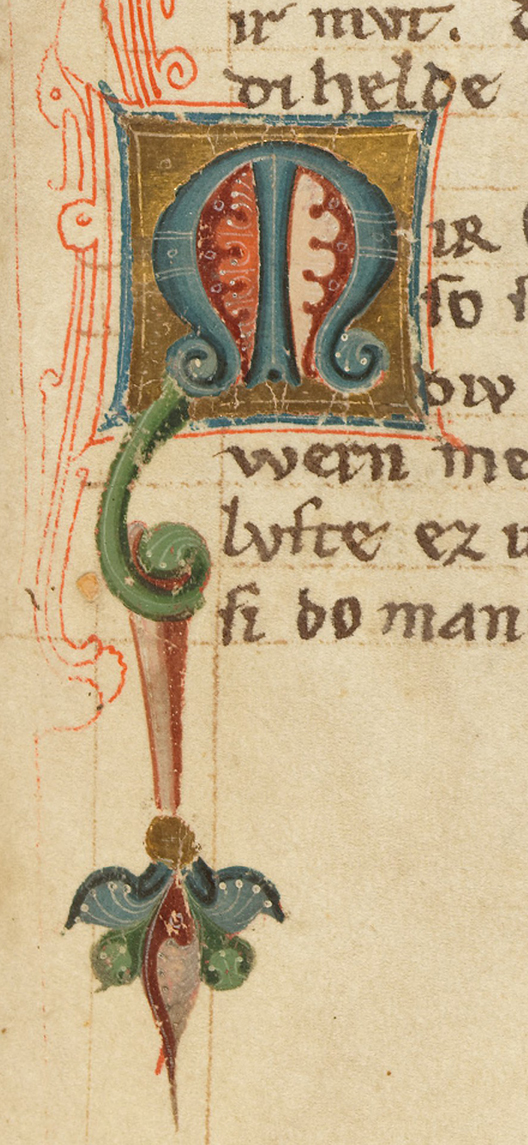 ir mvt.
di helde
MIR
so
div
wern me
lvste ez
si do man